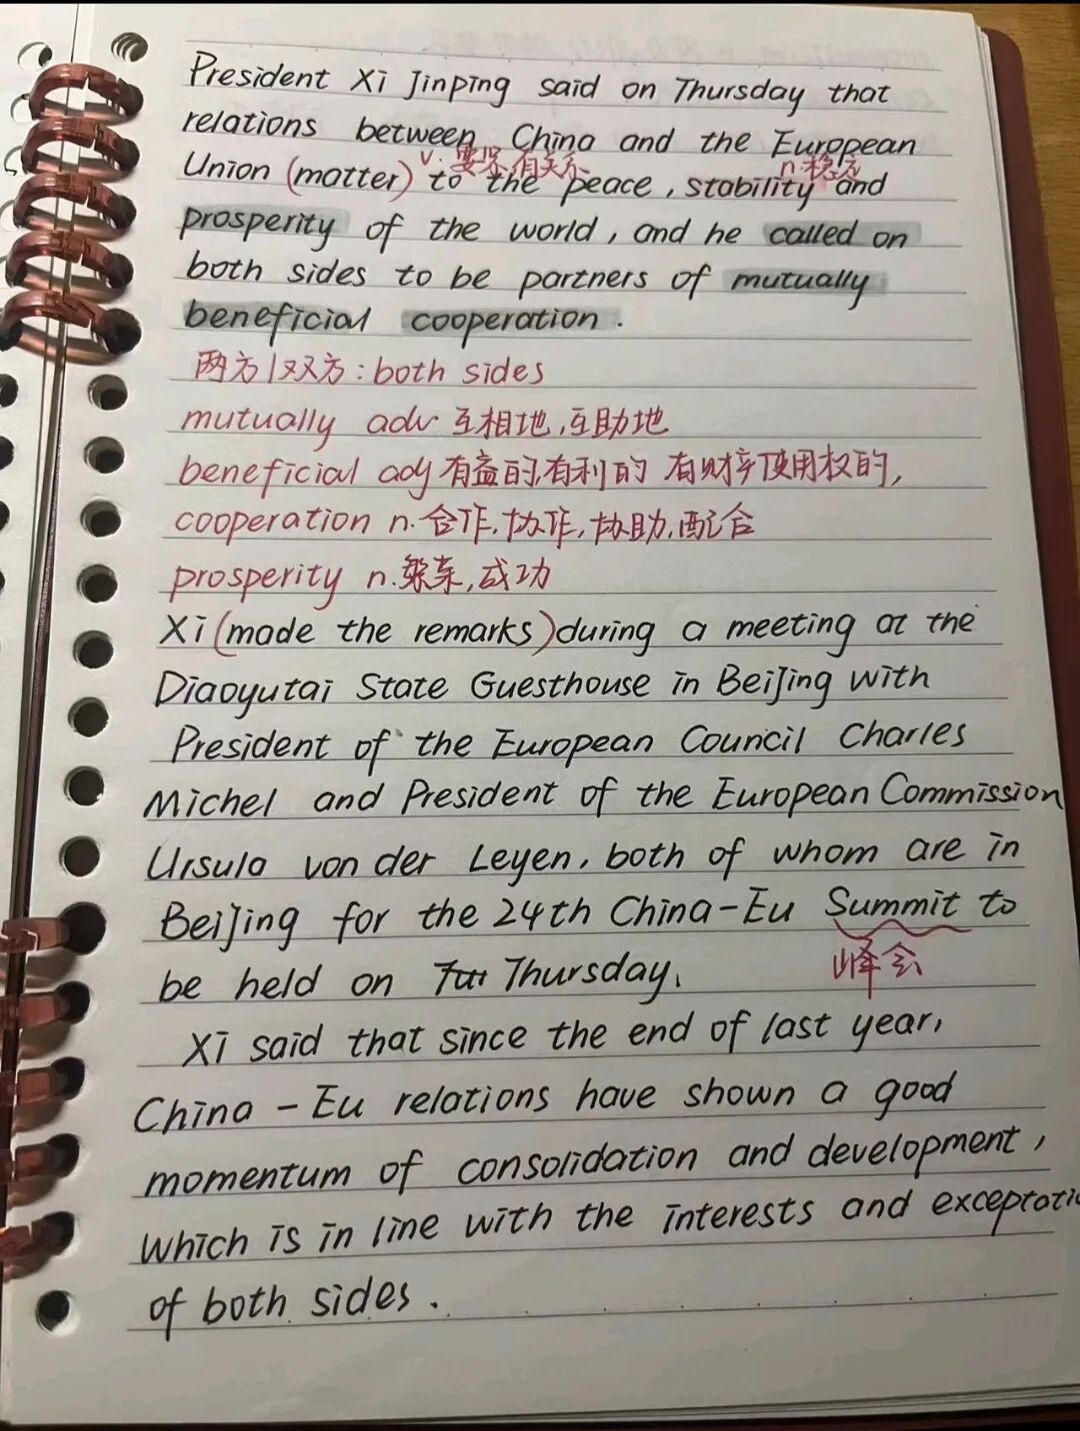 President Xi Jinping said on Thursday that
relations between China and the European
v. 要紧,有关系 n.稳定
Union (matter) to the peace, stability and
prosperity of the world, and he called on
both sides to be partners of mutually
beneficial cooperation.
两方/双方: both sides
mutually adv 互相地,互助地
beneficial adj 有益的,有利的 有财产使用权的,
cooperation n. 合作,协作,协助,配合
prosperity n. 繁荣,成功
Xi (made the remarks) during a meeting at the
Diaoyutai State Guesthouse in Beijing with
President of the European Council Charles
Michel and President of the European Commission
Ursula von der Leyen, both of whom are in
Beijing for the 24th China-Eu Summit to
峰会
be held on Thursday.
Xi said that since the end of last year,
China - Eu relations have shown a good
momentum of consolidation and development,
which is in line with the interests and exceptatio
of both sides.